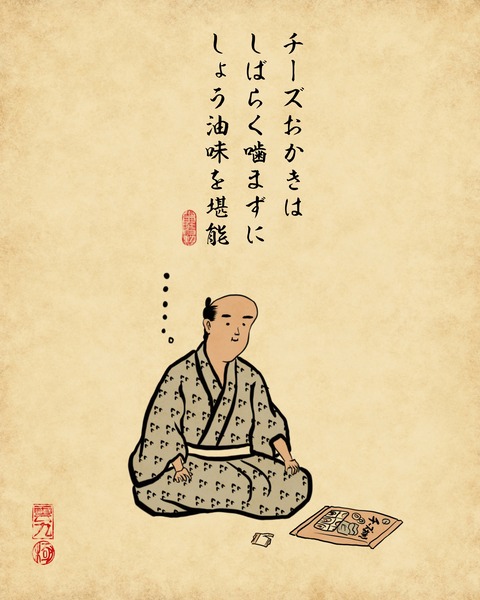 チーズおかきは
しばらく噛まずに
しょう油味を堪能